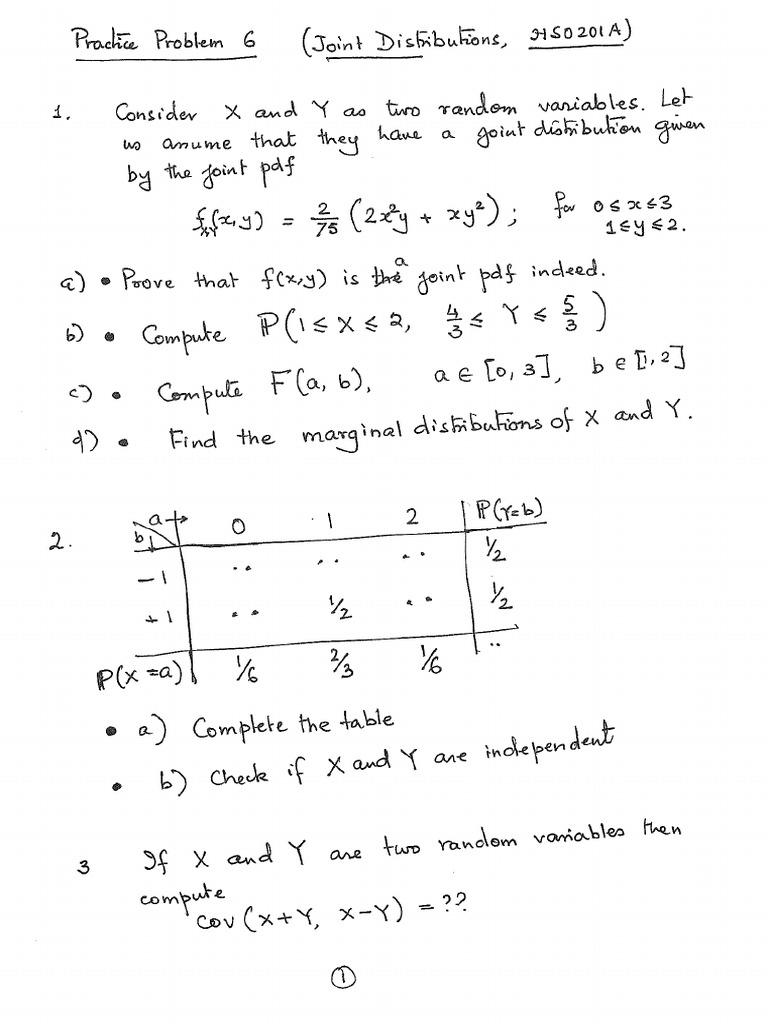 Practice Problem 6 (Joint Distributions, HSO201A)
1. Consider X and Y as two random variables. Let
us assume that they have a joint distribution given
by the joint pdf
f_{XY}(x,y) = 2/75 (2x²y + xy²) ; for 0 ≤ x ≤ 3
1 ≤ y ≤ 2.
a) • Prove that f(x,y) is a joint pdf indeed.
b) • Compute ℙ(1 ≤ X ≤ 2, 4/3 ≤ Y ≤ 5/3)
c) • Compute F(a, b), a ∈ [0, 3], b ∈ [1, 2]
d) • Find the marginal distributions of X and Y.
2. a → b ↓ 0 1 2 ℙ(Y=b)
-1 .. .. .. 1/2
+1 .. 1/2 .. 1/2
ℙ(X=a) 1/6 2/3 1/6 ..
• a) Complete the table
• b) Check if X and Y are independent
3 If X and Y are two random variables then
compute
cov(X+Y, X-Y) = ??
1